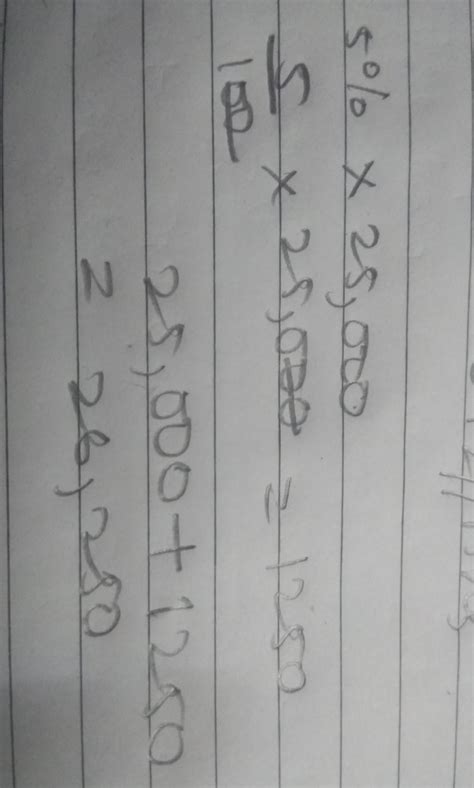 5% × 25,000
5/100 × 25,000 = 1250
25,000 + 1250
= 26,250